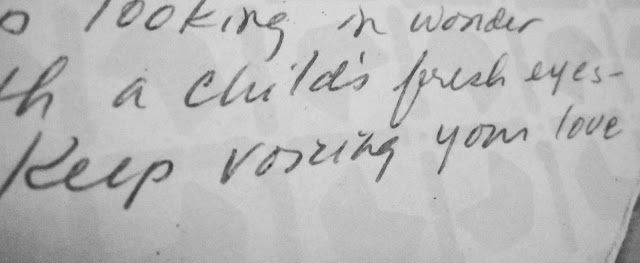 looking in wonder
a child's fresh eyes-
Keep voicing your love